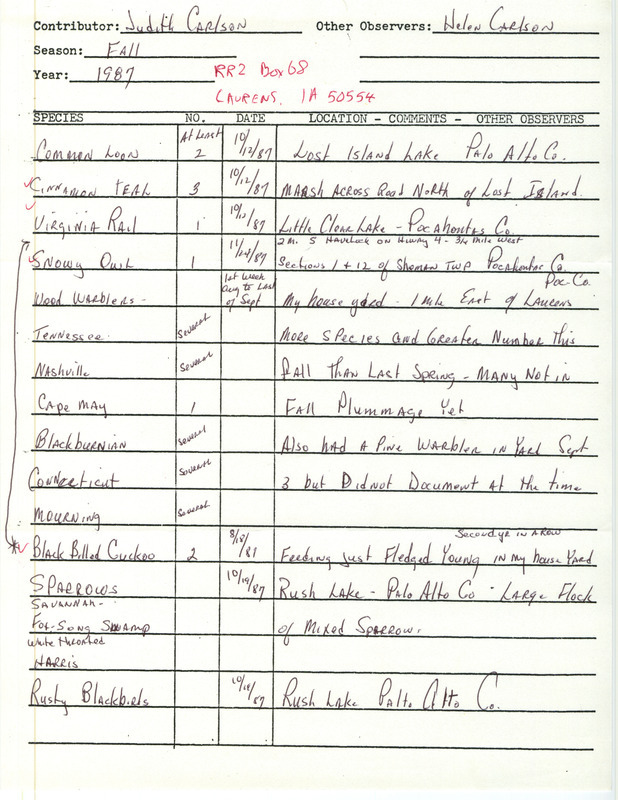 Contributor: Judith Carlson Other Observers: Helen Carlson
Season: Fall
Year: 1987 RR2 Box 68
Laurens, IA 50554
SPECIES NO. DATE LOCATION - COMMENTS - OTHER OBSERVERS
Common Loon At Least 2 10/12/87 Lost Island Lake Palo Alto Co.
Cinnamon Teal 3 10/12/87 Marsh across Road North of Lost Island.
Virginia Rail 1 10/12/87 Little Clear Lake - Pocahontas Co.
2 m. S Havelock on Hiway 4 - 3/4 mile west
Snowy Owl 1 11/24/87 Sections 1 + 12 of Sherman TWP Pocahontas Co.
Poc. Co.
Wood Warblers - 1st week Aug to Last of Sept My house yard - 1 mile East of Laurens
Tennessee Several More species and Greater Number this
Nashville Several fall than Last Spring - Many Not in
Cape May 1 Fall Plummage Yet
Blackburnian Several Also had a Pine Warbler in Yard Sept
Connecticut Several 3 but Did not Document at the time
Mourning Several
Second yr in a row
* Black Billed Cuckoo 2 8/18/81 Feeding Just Fledged Young in my house Yard
Sparrows 10/19/87 Rush Lake - Palo Alto Co - Large Flock
Savannah -
Fox - Song Swamp of Mixed Sparrow.
White throated
Harris
Rusty Blackbirds 10/18/87 Rush Lake Palto Alto Co.